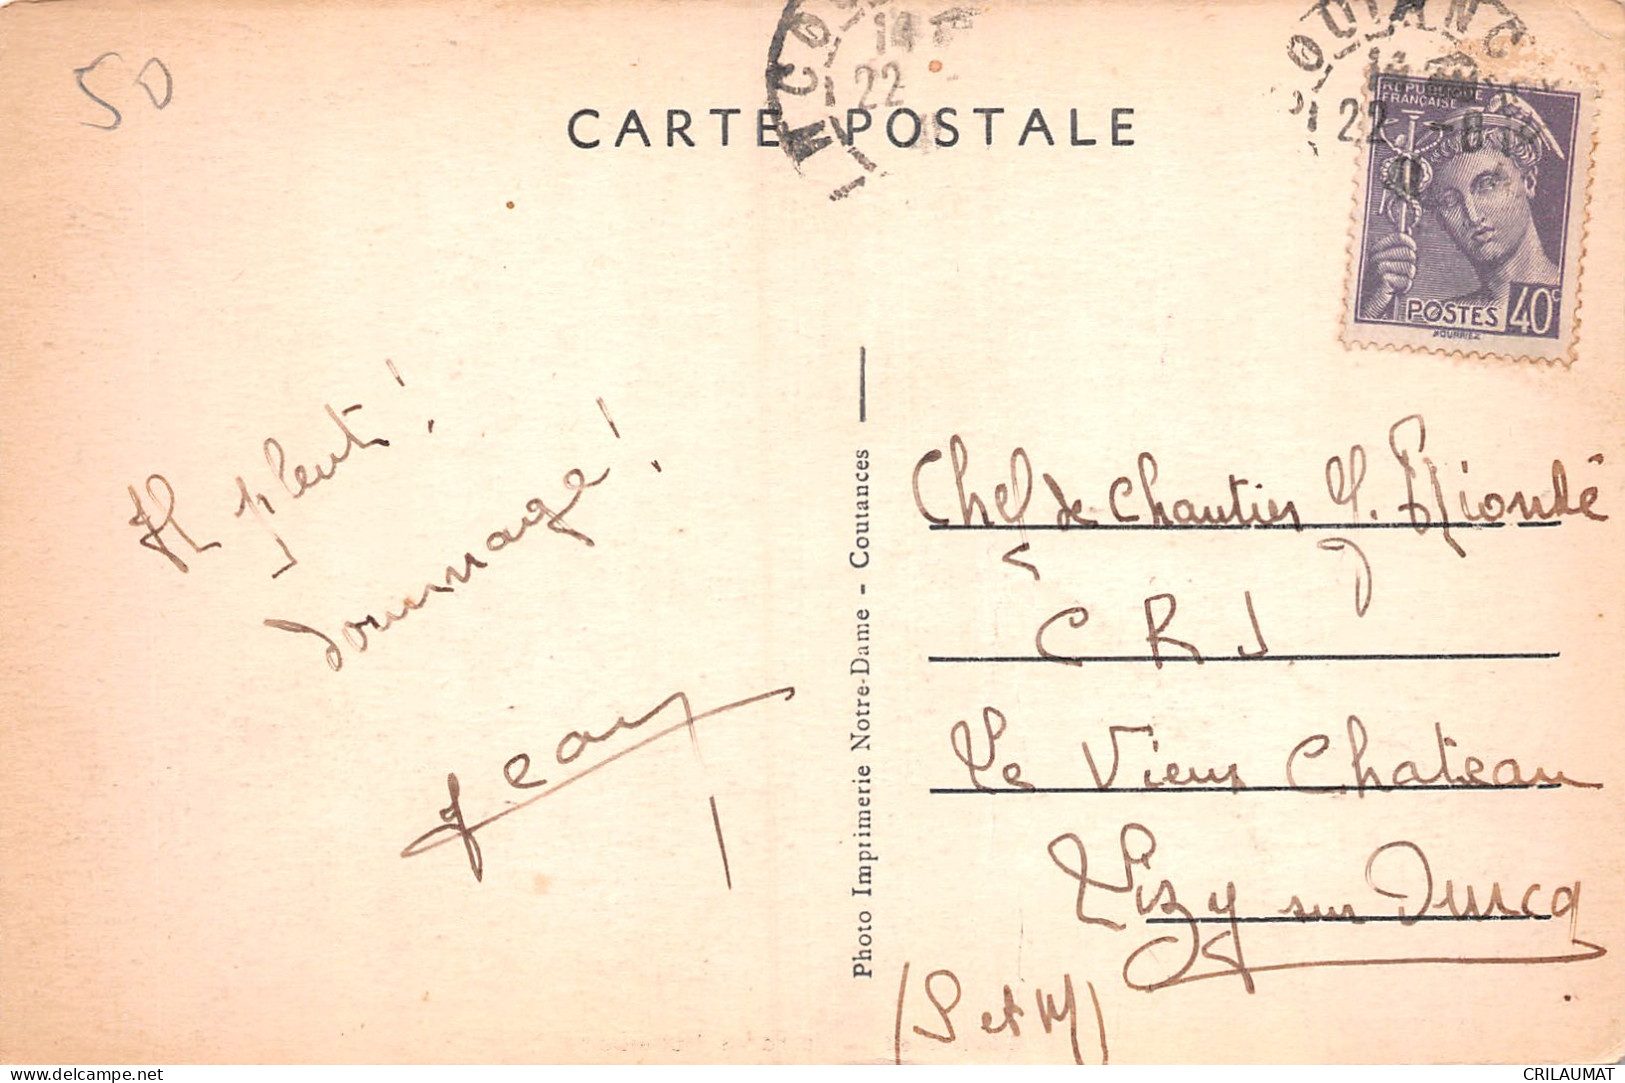 50
CARTE POSTALE
COUTANC
14
22 -8
RÉPUBLIQUE
FRANÇAISE
POSTES 40c
14
22
Il pleut !
dommage !
Jean
Photo Imprimerie Notre-Dame - Coutances
Chef de Chantier
C R J
Le Vieux Chateau
Lizy sur Ourcq
(S et M)
delcampe.net
CRILAUMAT